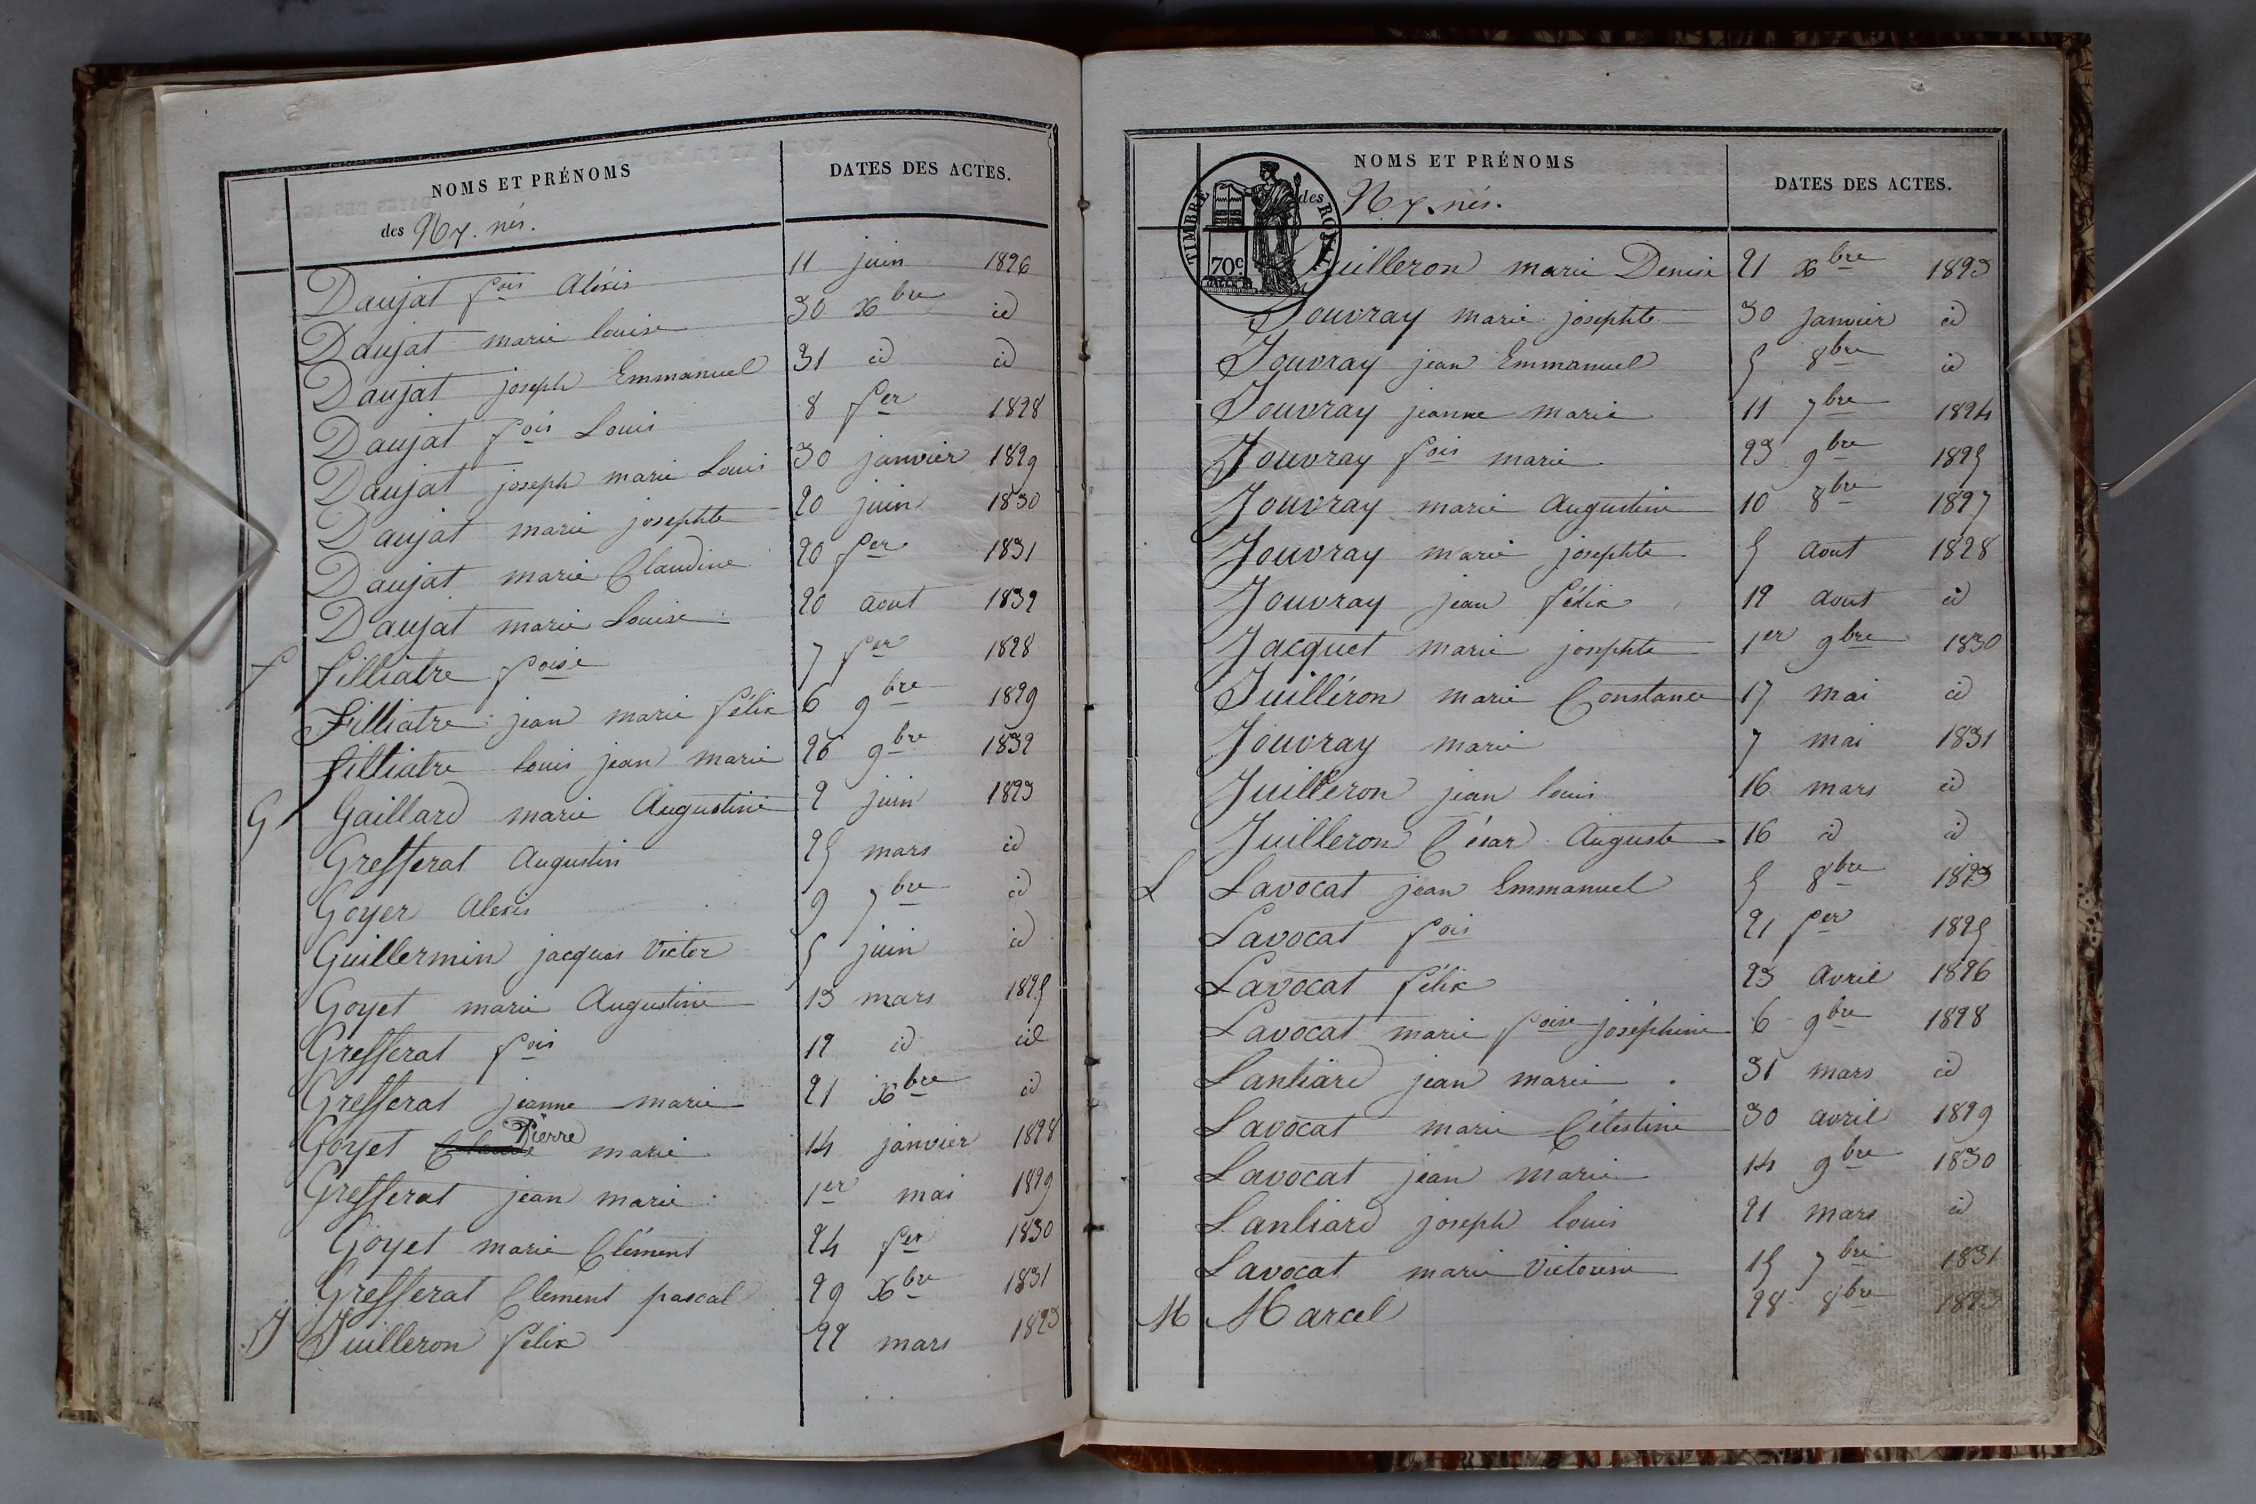 NOMS ET PRÉNOMS
des Nx. nés.
DATES DES ACTES.
Daujat fois Aléxis 11 juin 1826
Daujat marie louise 30 Xbre id
Daujat joseph Emmanuel 31 id id
Daujat fois Louis 8 fer 1828
Daujat joseph marie Louis 30 janvier 1829
Daujat marie josephte 20 juin 1830
Daujat marie Claudine 20 fer 1831
Daujat marie Louise 20 aout 1832
f filliatre foise 7 fer 1828
Filliatre jean marie félix 6 9bre 1829
filliatre Louis jean marie 26 9bre 1832
G Gaillard marie Augustine 2 juin 1823
Grefferat Augustin 25 mars id
Goyer Alexis 9 7bre id
Guillermin jacques Victor 5 juin id
Goyet marie Augustine 13 mars 1825
Grefferat fois 12 id id
Grefferat jeanne marie 21 Xbre id
Goyet Claude Pierre marie 14 janvier 1828
Grefferat jean marie 1er mai 1829
Goyet marie Clément 24 fer 1830
Grefferat Clément pascal 29 Xbre 1831
J Juilleron félix 22 mars 1823
NOMS ET PRÉNOMS
des Nx. nés.
DATES DES ACTES.
TIMBRE ROYAL
70c
Juilleron marie Denise 21 Xbre 1823
Jouvray marie josephte 30 janvier id
Jouvray jean Emmanuel 5 8bre id
Jouvray jeanne marie 11 7bre 1824
Jouvray fois marie 23 9bre 1825
Jouvray marie Augustine 10 8bre 1827
Jouvray marie josephte 5 aout 1828
Jouvray jean félix 12 aout id
Jacquet marie josephte 1er 9bre 1830
Juilléron marie Constance 17 mai id
Jouvray marie 7 mai 1831
Juilleron jean louis 16 mars id
Juilleron César Auguste 16 id id
L Lavocat jean Emmanuel 5 8bre 1823
Lavocat fois 21 fer 1825
Lavocat félix 23 avril 1826
Lavocat marie foise joséphine 6 9bre 1828
Lanliard jean marie 31 mars id
Lavocat marie Célestine 30 avril 1829
Lavocat jean marie 14 9bre 1830
Lanliard joseph louis 21 mars id
Lavocat marie Victorine 15 7bre 1831
M Marcel 28 8bre 1823